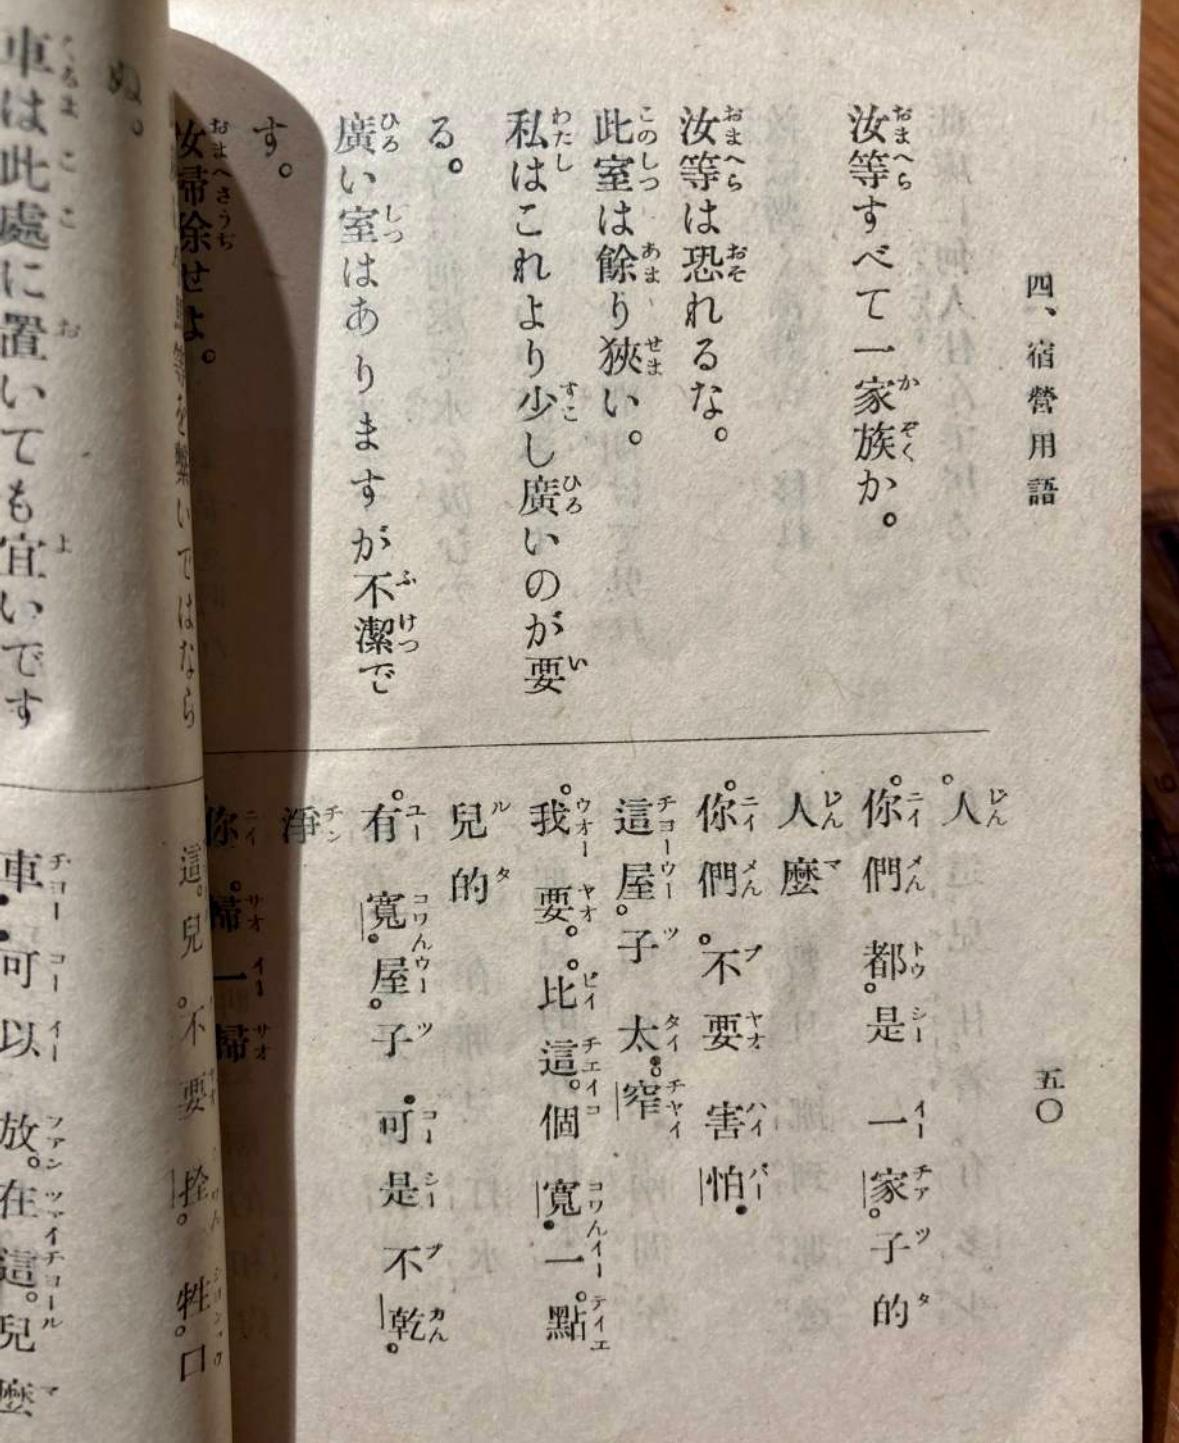 四、宿營用語
汝等すべて一家族か。
汝等は恐れるな。
此室は餘り狹い。
私はこれより少し廣いのが要
る。
廣い室はありますが不潔で
す。
汝掃除せよ。
人
你們都是一家子的
人麼
你們不要害怕
這屋子太窄
我要比這個寬一點
兒的
有寬屋子可是不乾
淨
你掃一掃
五〇
ぬ。
車は此處に置いても宜いです
這兒不要拴牲口
車可以放在這兒麼